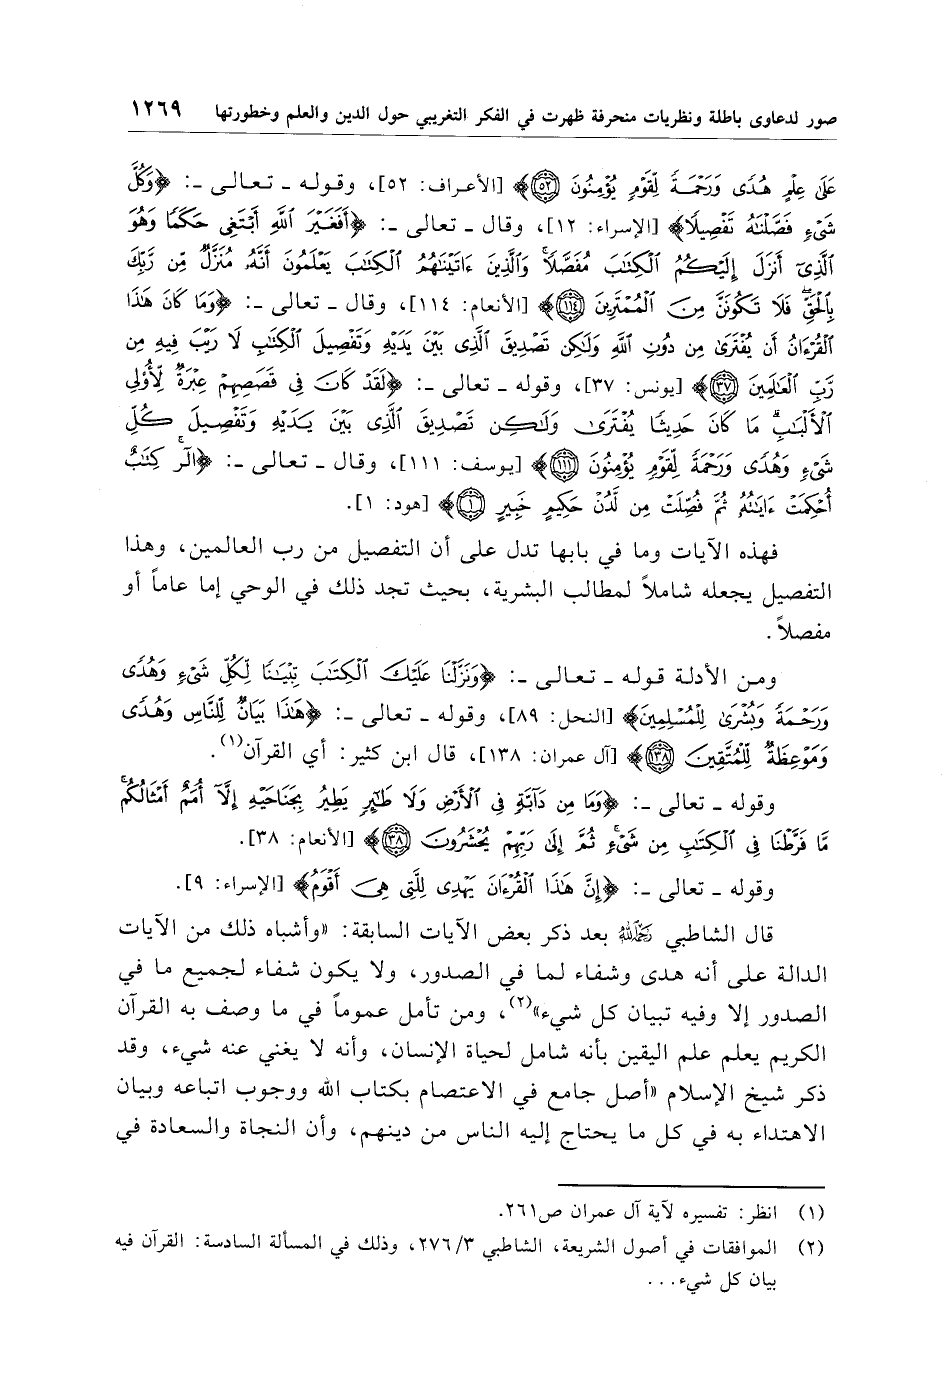 صور لدعاوى باطلة ونظريات منحرفة ظهرت في الفكر التغريبي حول الدين والعلم وخطورتها ١٢٦٩
عَلَىٰ عِلْمٍ هُدًى وَرَحْمَةً لِّقَوْمٍ يُؤْمِنُونَ ﴿٥٢﴾﴾ [الأعراف: ٥٢]، وقوله ـ تعالى ـ: ﴿وَكُلَّ
شَىْءٍ فَصَّلْنَٰهُ تَفْصِيلًا﴾ [الإسراء: ١٢]، وقال ـ تعالى ـ: ﴿أَفَغَيْرَ ٱللَّهِ أَبْتَغِى حَكَمًا وَهُوَ
ٱلَّذِىٓ أَنزَلَ إِلَيْكُمُ ٱلْكِتَٰبَ مُفَصَّلًا ۚ وَٱلَّذِينَ ءَاتَيْنَٰهُمُ ٱلْكِتَٰبَ يَعْلَمُونَ أَنَّهُۥ مُنَزَّلٌ مِّن رَّبِّكَ
بِٱلْحَقِّ ۖ فَلَا تَكُونَنَّ مِنَ ٱلْمُمْتَرِينَ ﴿١١٤﴾﴾ [الأنعام: ١١٤]، وقال ـ تعالى ـ: ﴿وَمَا كَانَ هَٰذَا
ٱلْقُرْءَانُ أَن يُفْتَرَىٰ مِن دُونِ ٱللَّهِ وَلَٰكِن تَصْدِيقَ ٱلَّذِى بَيْنَ يَدَيْهِ وَتَفْصِيلَ ٱلْكِتَٰبِ لَا رَيْبَ فِيهِ مِن
رَّبِّ ٱلْعَٰلَمِينَ ﴿٣٧﴾﴾ [يونس: ٣٧]، وقوله ـ تعالى ـ: ﴿لَقَدْ كَانَ فِى قَصَصِهِمْ عِبْرَةٌ لِّأُو۟لِى
ٱلْأَلْبَٰبِ ۗ مَا كَانَ حَدِيثًا يُفْتَرَىٰ وَلَٰكِن تَصْدِيقَ ٱلَّذِى بَيْنَ يَدَيْهِ وَتَفْصِيلَ كُلِّ
شَىْءٍ وَهُدًى وَرَحْمَةً لِّقَوْمٍ يُؤْمِنُونَ ﴿١١١﴾﴾ [يوسف: ١١١]، وقال ـ تعالى ـ: ﴿الٓر ۚ كِتَٰبٌ
أُحْكِمَتْ ءَايَٰتُهُۥ ثُمَّ فُصِّلَتْ مِن لَّدُنْ حَكِيمٍ خَبِيرٍ ﴿١﴾﴾ [هود: ١].
فهذه الآيات وما في بابها تدل على أن التفصيل من رب العالمين، وهذا
التفصيل يجعله شاملاً لمطالب البشرية، بحيث تجد ذلك في الوحي إما عاماً أو
مفصلاً.
ومن الأدلة قوله ـ تعالى ـ: ﴿وَنَزَّلْنَا عَلَيْكَ ٱلْكِتَٰبَ تِبْيَٰنًا لِّكُلِّ شَىْءٍ وَهُدًى
وَرَحْمَةً وَبُشْرَىٰ لِلْمُسْلِمِينَ﴾ [النحل: ٨٩]، وقوله ـ تعالى ـ: ﴿هَٰذَا بَيَانٌ لِّلنَّاسِ وَهُدًى
وَمَوْعِظَةٌ لِّلْمُتَّقِينَ ﴿١٣٨﴾﴾ [آل عمران: ١٣٨]، قال ابن كثير: أي القرآن(١).
وقوله ـ تعالى ـ: ﴿وَمَا مِن دَآبَّةٍ فِى ٱلْأَرْضِ وَلَا طَٰٓئِرٍ يَطِيرُ بِجَنَاحَيْهِ إِلَّآ أُمَمٌ أَمْثَالُكُم ۚ
مَّا فَرَّطْنَا فِى ٱلْكِتَٰبِ مِن شَىْءٍ ۚ ثُمَّ إِلَىٰ رَبِّهِمْ يُحْشَرُونَ ﴿٣٨﴾﴾ [الأنعام: ٣٨].
وقوله ـ تعالى ـ: ﴿إِنَّ هَٰذَا ٱلْقُرْءَانَ يَهْدِى لِلَّتِى هِىَ أَقْوَمُ﴾ [الإسراء: ٩].
قال الشاطبي رحمه الله بعد ذكر بعض الآيات السابقة: «وأشباه ذلك من الآيات
الدالة على أنه هدى وشفاء لما في الصدور، ولا يكون شفاء لجميع ما في
الصدور إلا وفيه تبيان كل شيء»(٢)، ومن تأمل عموماً في ما وصف به القرآن
الكريم يعلم علم اليقين بأنه شامل لحياة الإنسان، وأنه لا يغني عنه شيء، وقد
ذكر شيخ الإسلام «أصل جامع في الاعتصام بكتاب الله ووجوب اتباعه وبيان
الاهتداء به في كل ما يحتاج إليه الناس من دينهم، وأن النجاة والسعادة في
(١) انظر: تفسيره لآية آل عمران ص٢٦١.
(٢) الموافقات في أصول الشريعة، الشاطبي ٢٧٦/٣، وذلك في المسألة السادسة: القرآن فيه
بيان كل شيء...